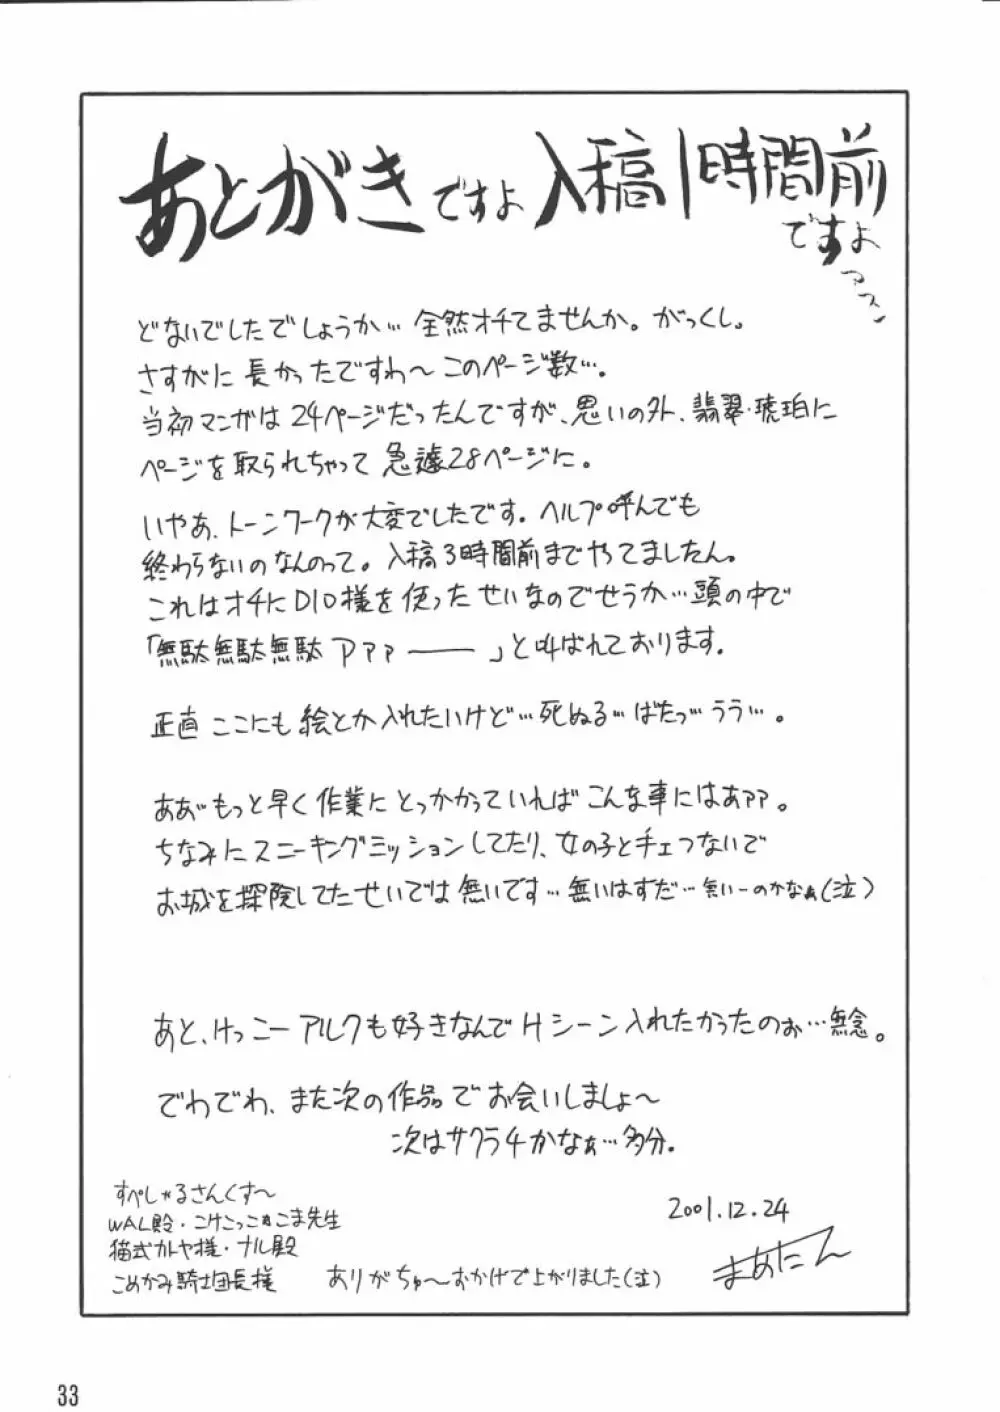 あとがきですよ 入稿1時間前
ですよ
どないでしたでしょうか… 全然オチてませんか。がっくし。
さすがに長かったですわ〜このページ数…。
当初マンガは24ページだったんですが、思いの外、翡翠・琥珀に
ページを取られちゃって急遽28ページに。
いやあ、トーンワークが大変でしたです。ヘルプ呼んでも
終わらないのなんのって。入稿3時間前までやってましたん。
これはオチにDIO様を使ったせいなのでせうか…頭の中で
「無駄無駄無駄アァァ――」と叫ばれております。
正直ここにも絵とか入れたいけど…死ぬる…ばたっ…うう…。
ああ゛もっと早く作業にとっかかっていればこんな事にはあァァ。
ちなみにスニーキングミッションしてたり、女の子と手ェつないで
お城を探険してたせいでは無いです…無いはずだ…無いーのかなぁ(泣)
あと、けっこーアルクも好きなんでHシーン入れたかったのぉ…無念。
でわでわ、また次の作品でお会いしましょ〜
次はサクラ4かなぁ…多分。
すぺしゃるさんくす〜
WAL殿・こけこっこぉこま先生
猫式カトヤ様・ナル殿
こめかみ騎士団長様 ありがちゅ〜おかげで上がりました(泣)
2001.12.24
まあたん
33